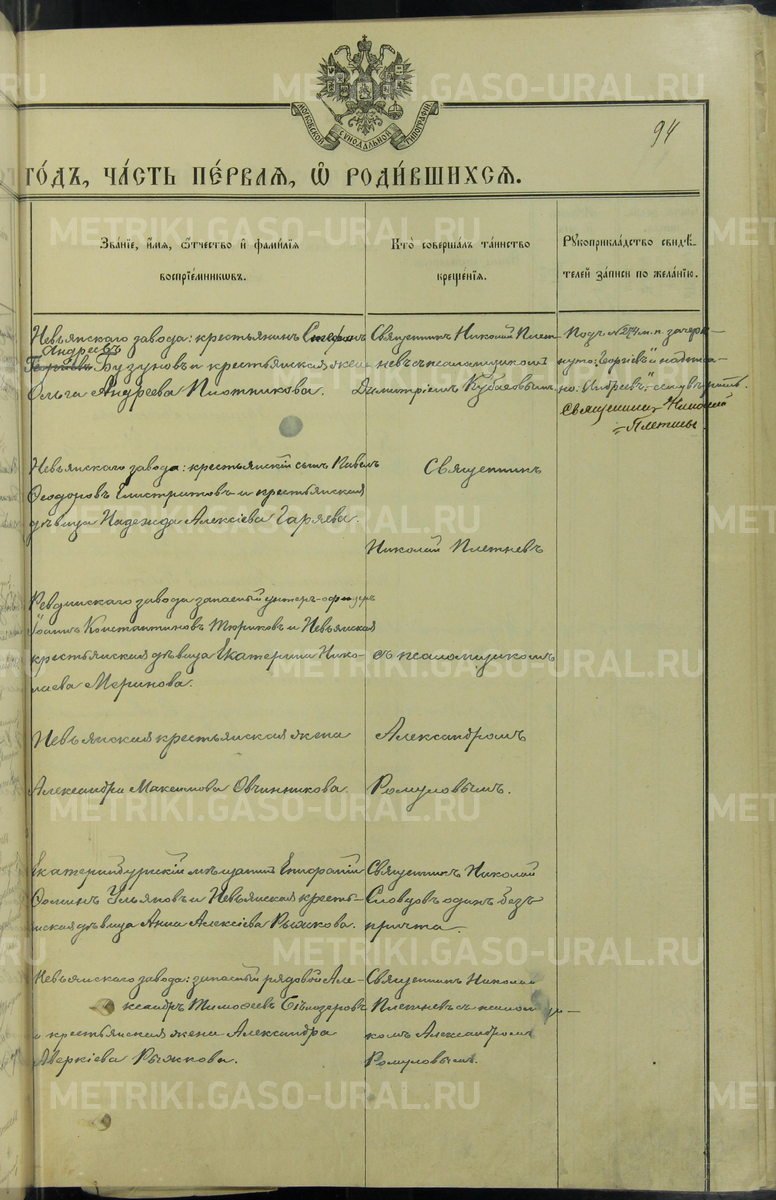 МОСКОВСКОЙ СѴНОДАЛЬНОЙ ТИПОГРАФІИ
94
ГО́ДЪ, ЧА́СТЬ ПЕ́РВАЯ, Ѡ҆ РОДИ́ВШИХСЯ.
Зва́нїе, и҆́мя, ѻ҆́тчество и҆ фами́лїя
воспрїе́мникѡвъ.
Кто̀ соверша́лъ та́инство
креще́нїя.
Рꙋкоприкла́дство свидѣ́-
телей за́писи по жела́нїю.
Невьянскаго завода: крестьянинъ Стефанъ
Андреевъ
Георгіевъ Бузуновъ и крестьянская жена
Ольга Андреева Плотникова.
Священникъ Николай Плет-
невъ съ псаломщикомъ
Димитріемъ
Подъ № 274 м. п. зачерк-
нуто: "Георгіевъ" и надписа-
но: "Андреевъ"
Священникъ Николай
Плетневъ.
Невьянскаго завода: крестьянскій сынъ Павелъ
Ѳеодоровъ Елистратовъ и крестьянская
дѣвица Надежда Алексіева Гаряева.
Священникъ
Николай Плетневъ
Ревдинскаго завода запасный унтеръ-офицеръ
Іоаннъ Константиновъ Тюриковъ и Невьянская
крестьянская дѣвица Екатерина Нико-
лаева Меринова.
съ псаломщикомъ
Невьянская крестьянская жена
Александра Максимова Овчинникова.
Александромъ
Ромуловымъ.
Екатеринбургскій мѣщанинъ
Ѳоминъ Ульяновъ и Невьянская кресть-
янская дѣвица Анна Алексіева Рыжкова.
Священникъ Николай
Словцовъ одинъ безъ
причта.
Невьянскаго завода: запасный рядовой Але-
ксандръ Тимоѳеевъ Бѣлозеровъ
и крестьянская жена Александра
Аверкіева Рыжкова.
Священникъ Николай
Плетневъ съ псаломщи-
комъ Александромъ
Ромуловымъ.
METRIKI.GASO-URAL.RU